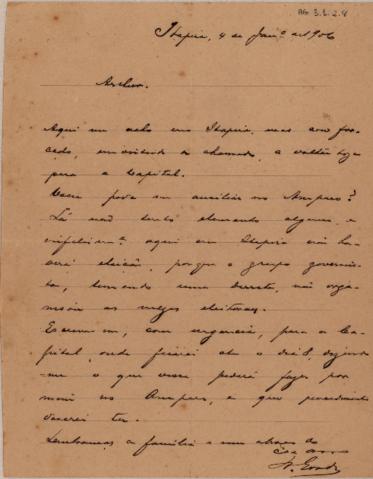 AG 3.1.2.8
Itapira, 4 de Jan.º de 1906
Aqui me acho em Itapira, mas sou for-
çado, em virtude de chamado, a voltar hoje
para a Capital.
me auxiliar no Amparo?
Lá não tenho elemento algum e
infelizm.te aqui em Itapira não ha-
verá eleição, porque o grupo governis-
ta, temendo uma derrota, não orga-
nisou as mezas eleitoraes.
Escreva-me, com urgencia, para a Ca-
pital, onde ficarei até o dia 8, dizendo
-me o que voce poderá fazer por
mim no Amparo, e que procedimento
deverei ter.
Lembranças a familia e um abraço do